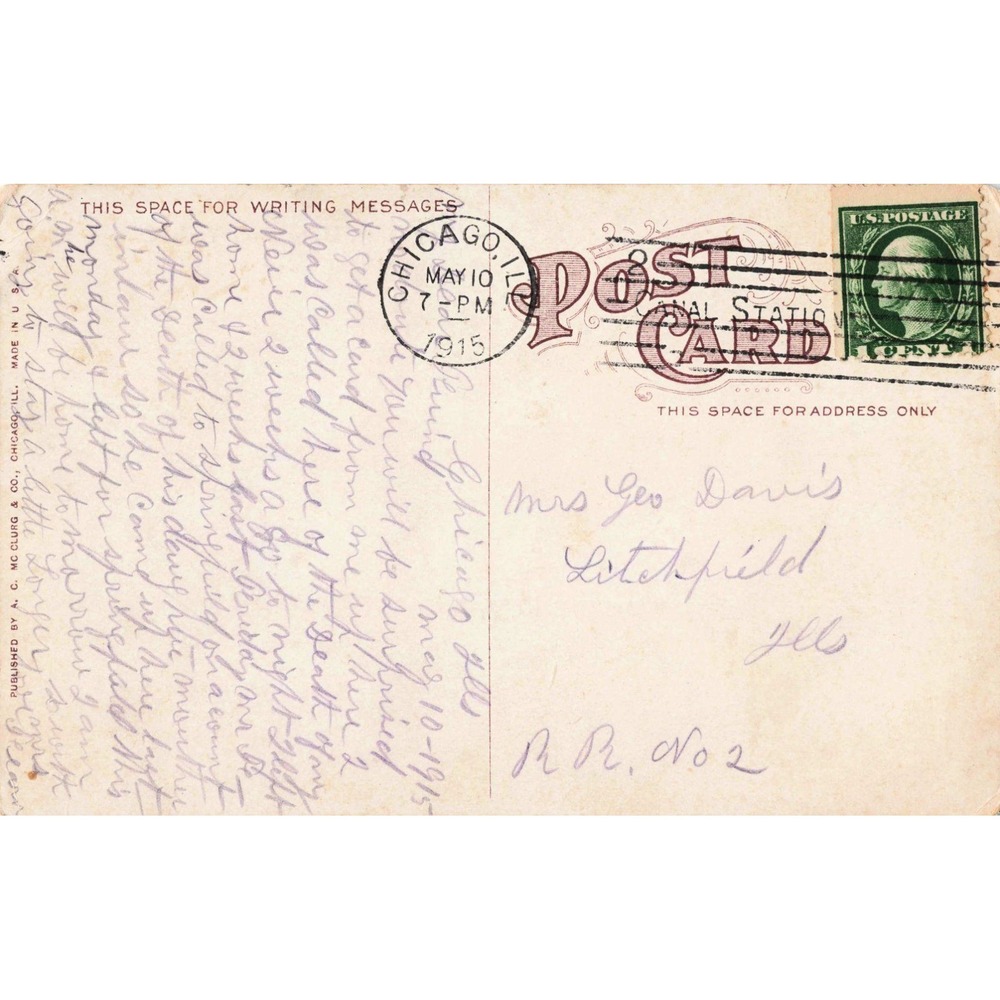 THIS SPACE FOR WRITING MESSAGES
Chicago Ills
May 10-1915
Friend
you will be surprised
to get a card from me up here I
was called here of the Death of my
Neice 2 weeks ago to night I left
home 2 weeks last
was called to springfield on account
of the Death of his daughter mother
in law so he came up here last
monday & left for springfield this
he will be home to morrow I am
Going to stay a little Longer
PUBLISHED BY A. C. MC CLURG & CO., CHICAGO, ILL. MADE IN U. S. A.
CHICAGO, ILL
MAY 10
7-PM
1915
CANAL STATION
POST
CARD
U.S. POSTAGE
1 CENT 1
THIS SPACE FOR ADDRESS ONLY
Mrs Geo Davis
Litchfield
Ills
R R. No 2